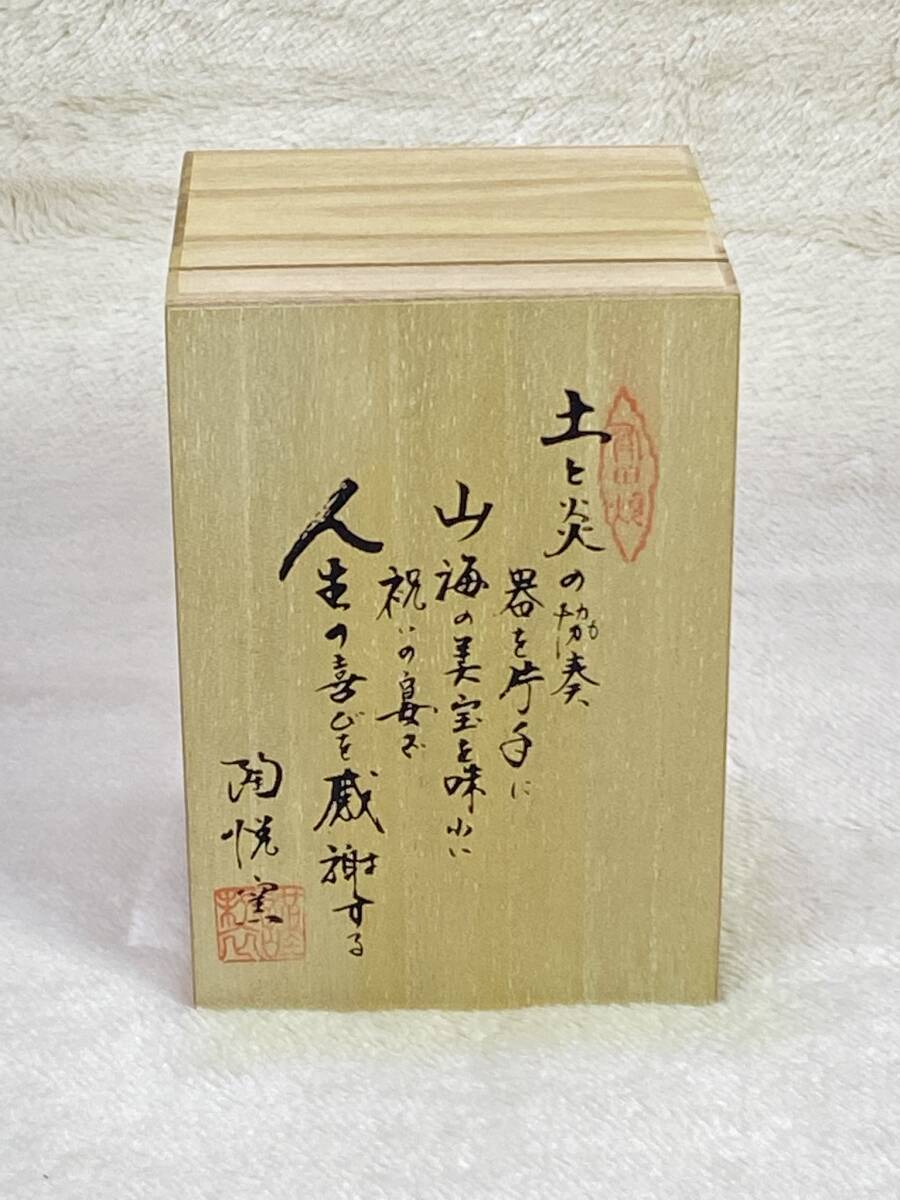 土と炎の協奏
器を片手に
山海の美宝を味わい
祝いの宴で
人生の喜びを感謝する
陶悦窯